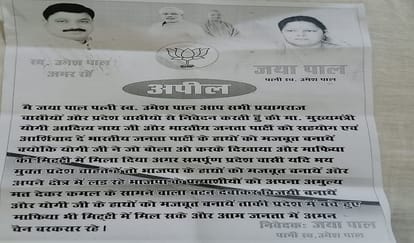 स्व. उमेश पाल
अमर रहें
जया पाल
पत्नी स्व. उमेश पाल
अपील
मै जया पाल पत्नी स्व. उमेश पाल आप सभी प्रयागराज
वासीयों और प्रदेश वासीयो से निवेदन करती हूँ की मा. मुख्यमंत्री
योगी आदित्य नाथ जी और भारतीय जनता पार्टी को सहयोग एवं
आशिवाद दे भारतीय जनता पार्टी के हाथों को मजबूत बनायें
क्योकि योगी जी ने जो बोला वो करके दिखवाया और माफिया
को मिट्टी में मिला दिया अगर सम्पूर्ण प्रदेश वासी यदि भय
मुक्त प्रदेश चाहते है तो भाजपा के हाथों को मजबूत बनायें और
अपने क्षेत्र में लड़ रहे भाजपा के प्रत्याशीयों को अपना अमुल्य
मत देकर कमल के सामने वाला बटन दबाकर विजयी बनायें
और योगी जी के हाथों को मजबूत बनायें ताकी प्रदेश में बचे हुए
माफिया भी मिट्टी में मिल सके और आम जनता में अमन
चैन बरकरार रहे।
निवेदकः जया पाल
पत्नी स्व. उमेश पाल